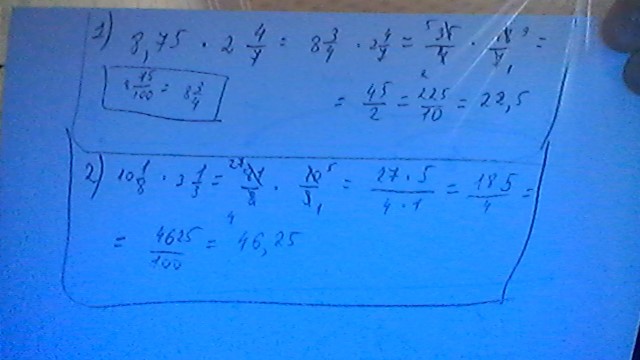 1) 8,75 · 2 4/7 = 8 3/4 · 2 4/7 = 35/4 · 18/7 =
75/100 = 8 3/4
= 45/2 = 225/10 = 22,5
2) 10 1/8 · 3 1/3 = 81/8 · 10/3 = 27·5/4·1 = 185/4 =
= 4625/100 = 46,25